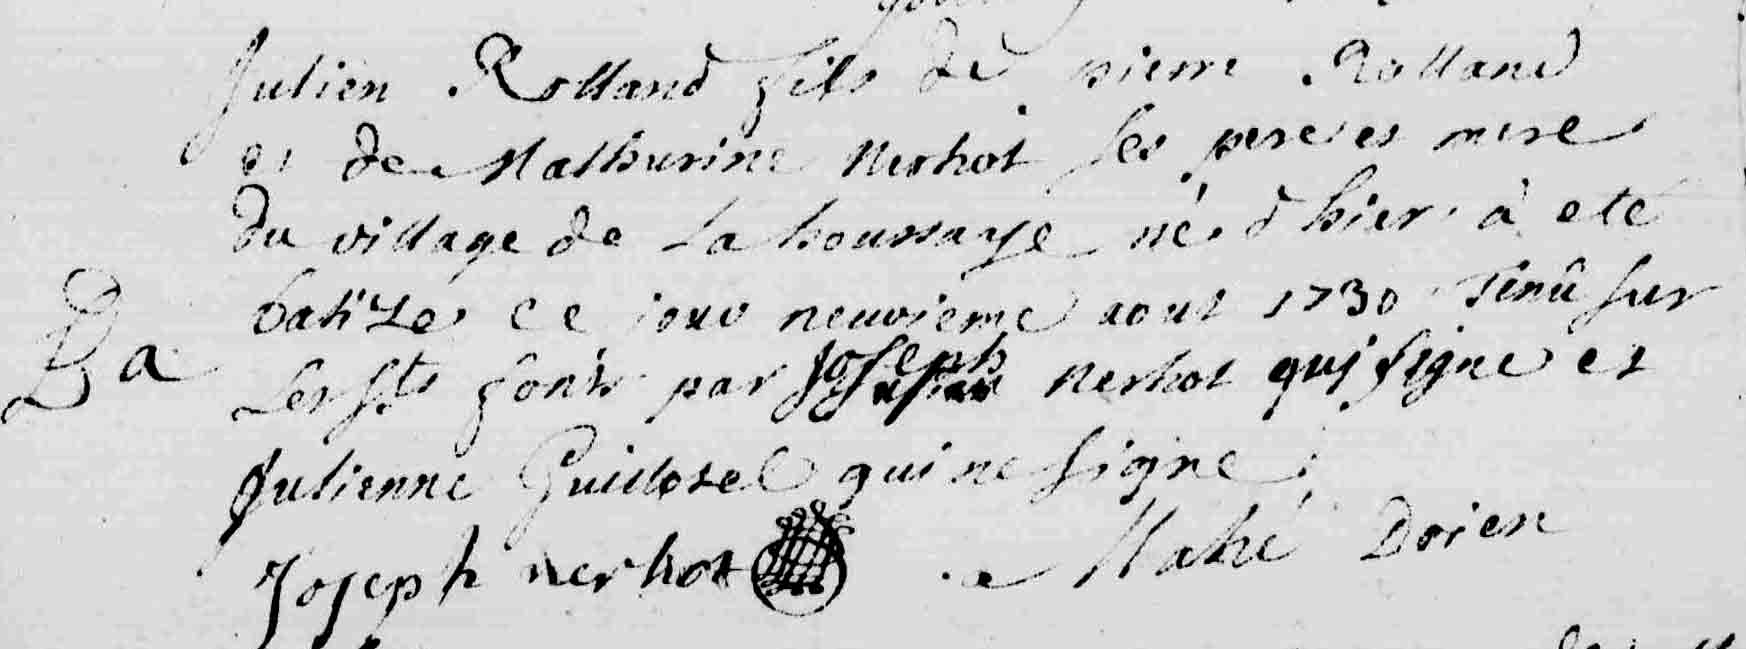 Julien Rolland fils de pierre Rolland
et de Mathurine Nerhot ses pere et mere
du village de La houssaye né d'hier à eté
batizé ce jour neuvieme aout 1730 Tenû sur
Les sts fonts par Joseph Nerhot qui signe et
Julienne Guillotel qui ne signe
Ba
Joseph nerhot Mahé Doien